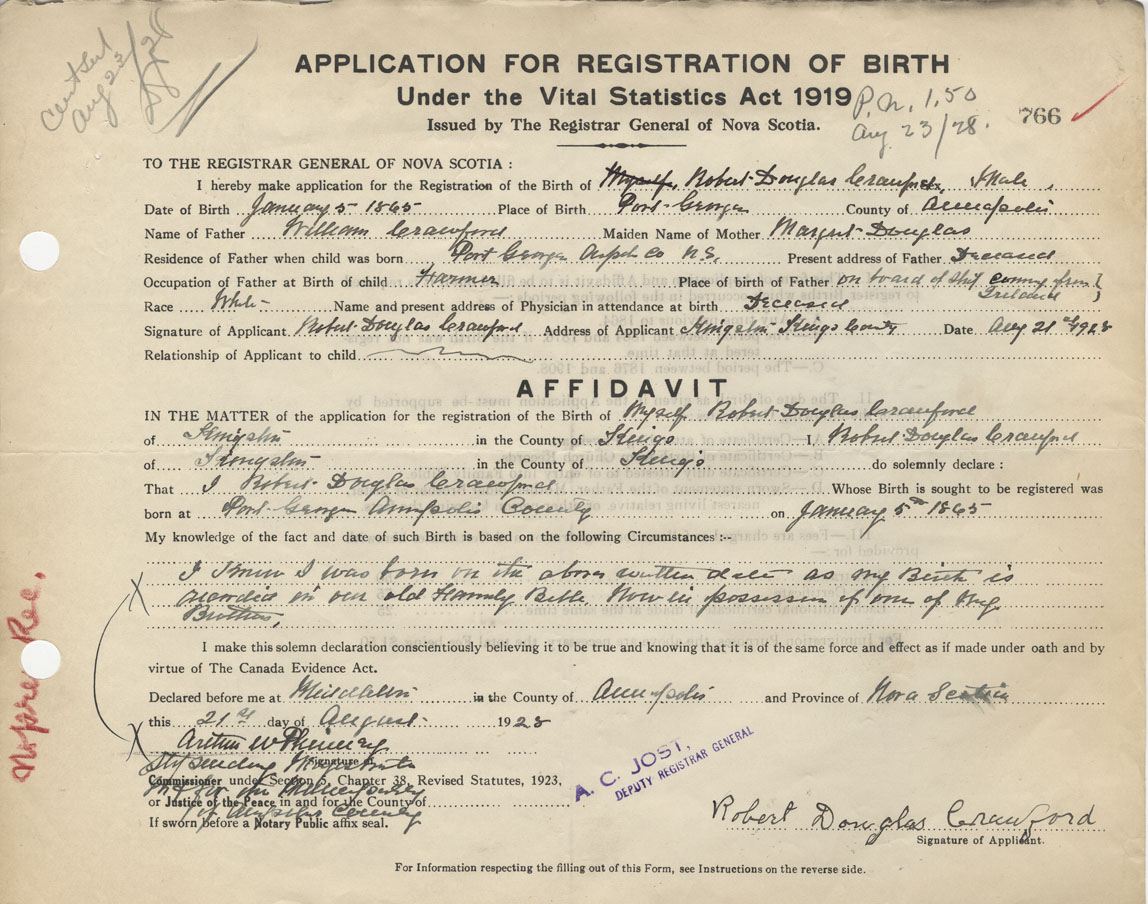 Cert Sent
Aug 23/28
APPLICATION FOR REGISTRATION OF BIRTH
Under the Vital Statistics Act 1919
P.N. 1.50
Issued by The Registrar General of Nova Scotia.
Aug 23/28.
766
TO THE REGISTRAR GENERAL OF NOVA SCOTIA :
I hereby make application for the Registration of the Birth of Myself, Robert Douglas Crawford Sex, Male.
Date of Birth January 5 1865 Place of Birth Port George County of Annapolis
Name of Father William Crawford Maiden Name of Mother Margret Douglas
Residence of Father when child was born Port George Co N.S. Present address of Father Deceased
Occupation of Father at Birth of child Farmer Place of birth of Father on board of Ship coming from
Ireland
Race White Name and present address of Physician in attendance at birth Deceased
Signature of Applicant Robert Douglas Crawford Address of Applicant Kingston Kings County Date Aug 21st 1928
Relationship of Applicant to child
AFFIDAVIT
IN THE MATTER of the application for the registration of the Birth of Myself Robert Douglas Crawford
of Kingston in the County of Kings I, Robert Douglas Crawford
of Kingston in the County of Kings do solemnly declare :
That I Robert Douglas Crawford Whose Birth is sought to be registered was
born at Port George Annapolis County on January 5th 1865
My knowledge of the fact and date of such Birth is based on the following Circumstances :--
I Know I was born on the above written date as my Birth is
recorded in our old Family Bible. Now in possession of one of my
Brothers,
I make this solemn declaration conscientiously believing it to be true and knowing that it is of the same force and effect as if made under oath and by
virtue of The Canada Evidence Act.
Declared before me at Middleton in the County of Annapolis and Province of Nova Scotia
this 21st day of August 1928
Arthur W Phinney
Signature of
Stipendiary Magistrate
Commissioner under Section 5, Chapter 38, Revised Statutes, 1923,
in & for the Municipality
or Justice of the Peace in and for the County of
of Annapolis County
If sworn before a Notary Public affix seal.
A. C. JOST,
DEPUTY REGISTRAR GENERAL
Robert Douglas Crawford
Signature of Applicant.
For Information respecting the filling out of this Form, see Instructions on the reverse side.